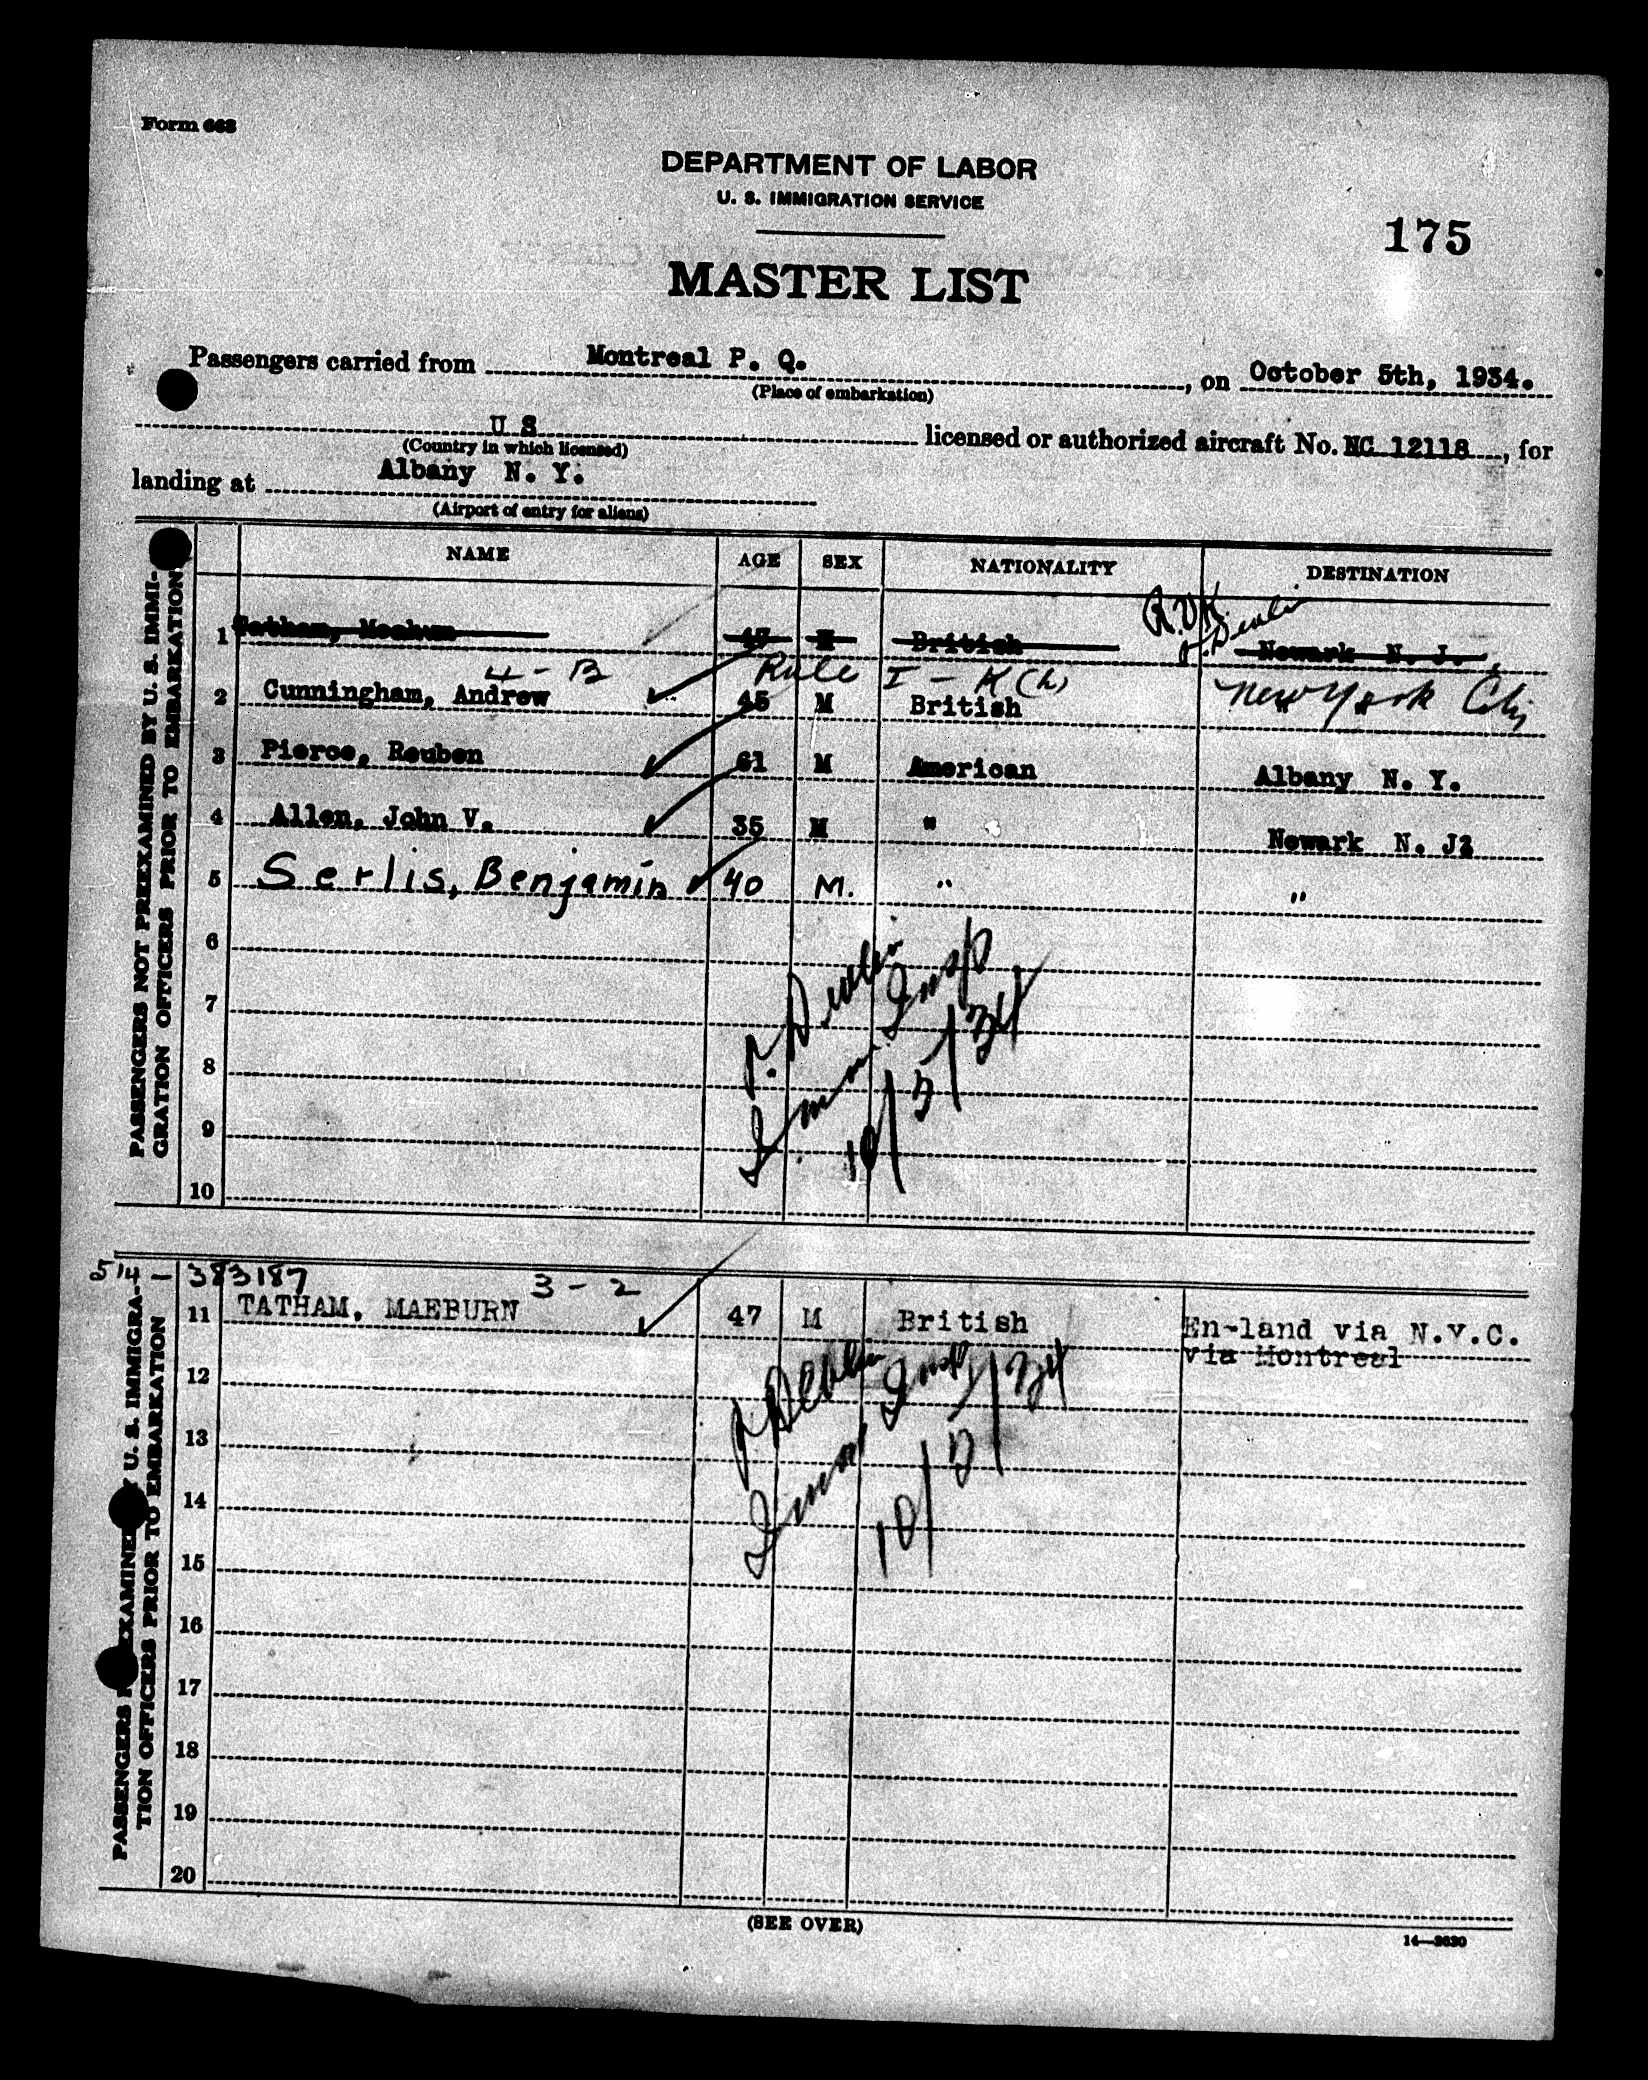 Form 663
DEPARTMENT OF LABOR
U. S. IMMIGRATION SERVICE
175
MASTER LIST
Passengers carried from Montreal P. Q. , on October 5th, 1934.
(Place of embarkation)
U S licensed or authorized aircraft No. NC 12118 , for
(Country in which licensed)
landing at Albany N. Y.
(Airport of entry for aliens)
NAME AGE SEX NATIONALITY DESTINATION
PASSENGERS NOT PREEXAMINED BY U. S. IMMI-
GRATION OFFICERS PRIOR TO EMBARKATION
1 47 M British Newark N. J.
4 - B Rule I - K (h)
2 Cunningham, Andrew 45 M British New York City
3 Pierce, Reuben 61 M American Albany N. Y.
4 Allen, John V. 35 M " Newark N. J2
5 Serlis, Benjamin 40 M. " "
6
7
8
9
10
J. Devlin
Immn. Insp
10/5/34
PASSENGERS EXAMINED U. S. IMMIGRA-
TION OFFICERS PRIOR TO EMBARKATION
514 - 383187 3 - 2
11 TATHAM, MAEBURN 47 M British En-land via N.Y.C.
via Montreal
12
13
14
15
16
17
18
19
20
J. Devlin
Immn Insp
10/5/34
(SEE OVER)
14—2630